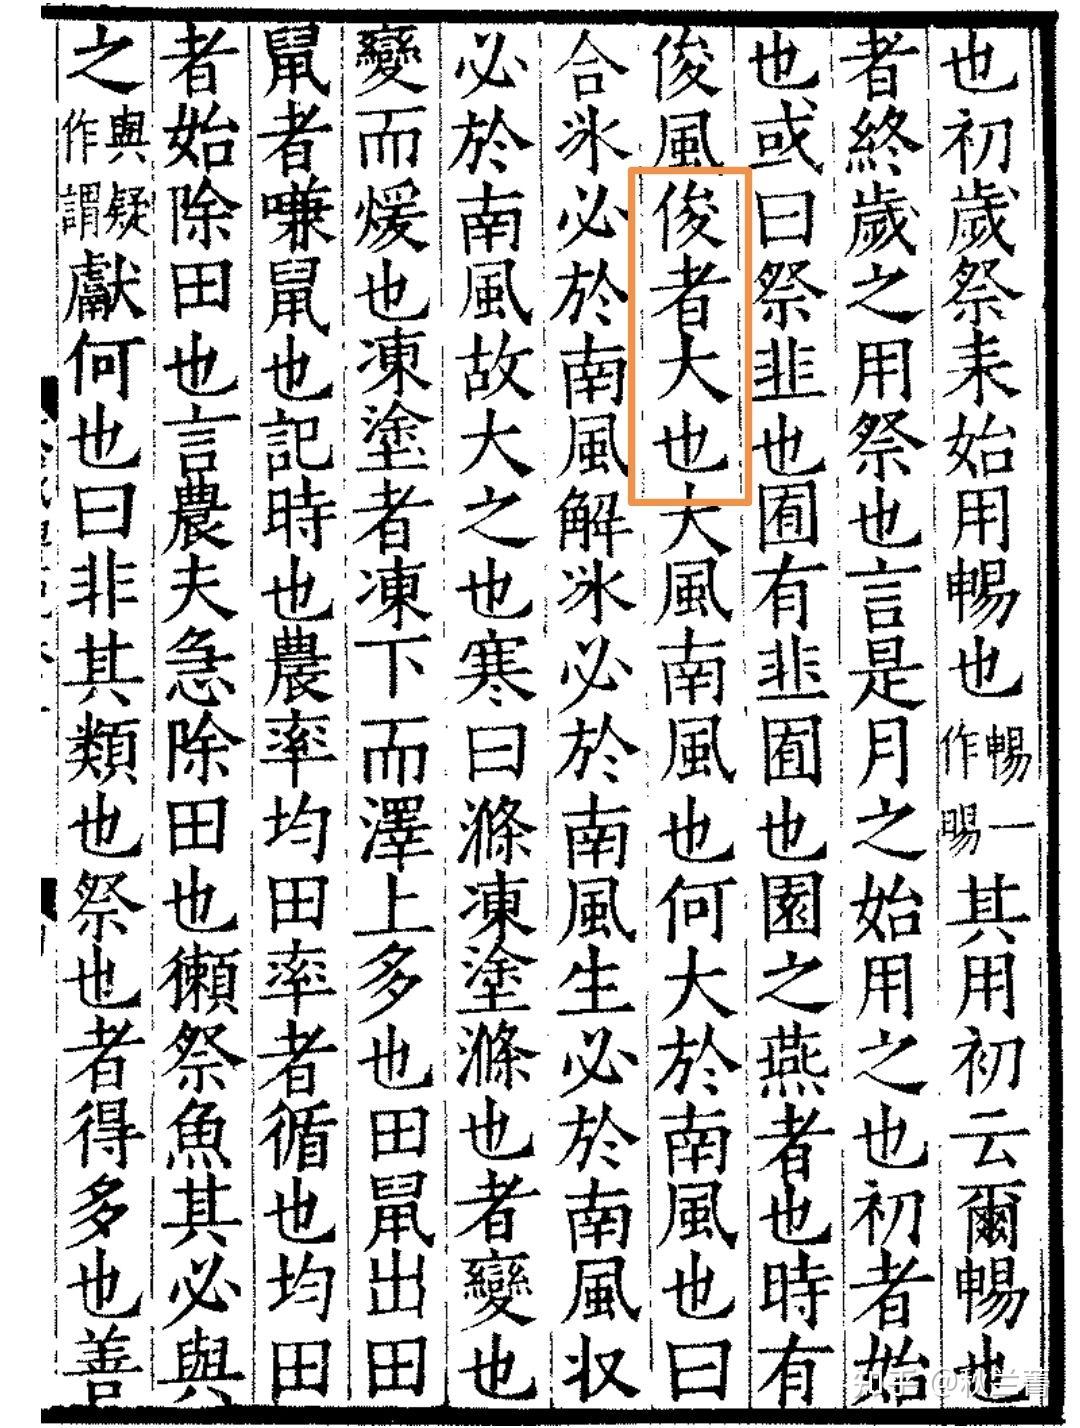 也初歲祭耒始用暢也暢一作晹其用初云爾暢也
者終歲之用祭也言是月之始用之也初者始
也或曰祭韭也囿有韭囿也園之燕者也時有
俊風俊者大也大風南風也何大於南風也曰
合氷必於南風解氷必於南風生必於南風収
必於南風故大之也寒曰滌凍塗滌也者變也
變而煖也凍塗者凍下而澤上多也田鼠出田
鼠者嗛鼠也記時也農率均田率者循也均田
者始除田也言農夫急除田也獺祭魚其必與
之與疑作謂獻何也曰非其類也祭也者得多也善
知乎 @秋兰青